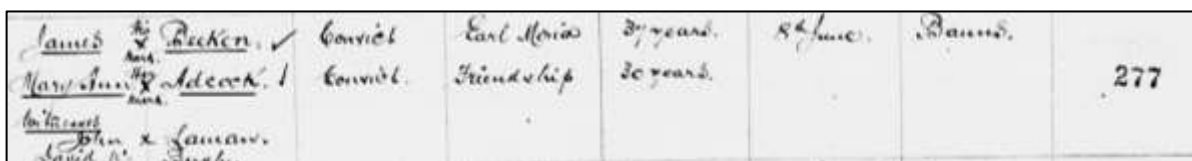 James his x mark Becken. ✓ Convict Earl Moria 37 years. 8th June. Banns.
Mary Ann her x mark Adcock. Convict. Friendship 30 years. 277
Witnesses
John x
David